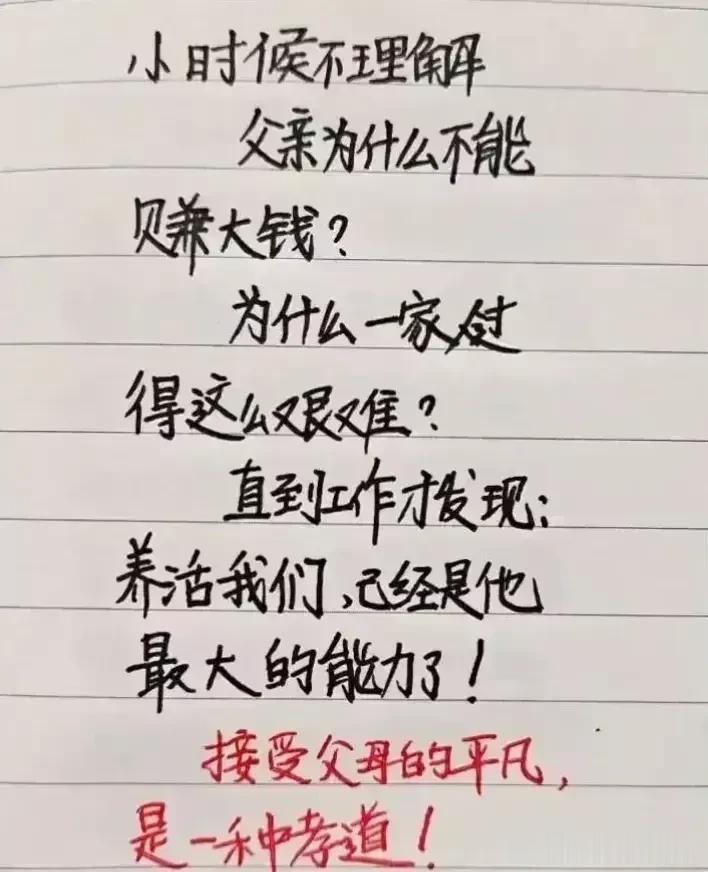 小时候不理解
父亲为什么不能
赚大钱？
为什么一家过
得这么艰难？
直到工作才发现：
养活我们，已经是他
最大的能力了！
接受父母的平凡，
是一种孝道！